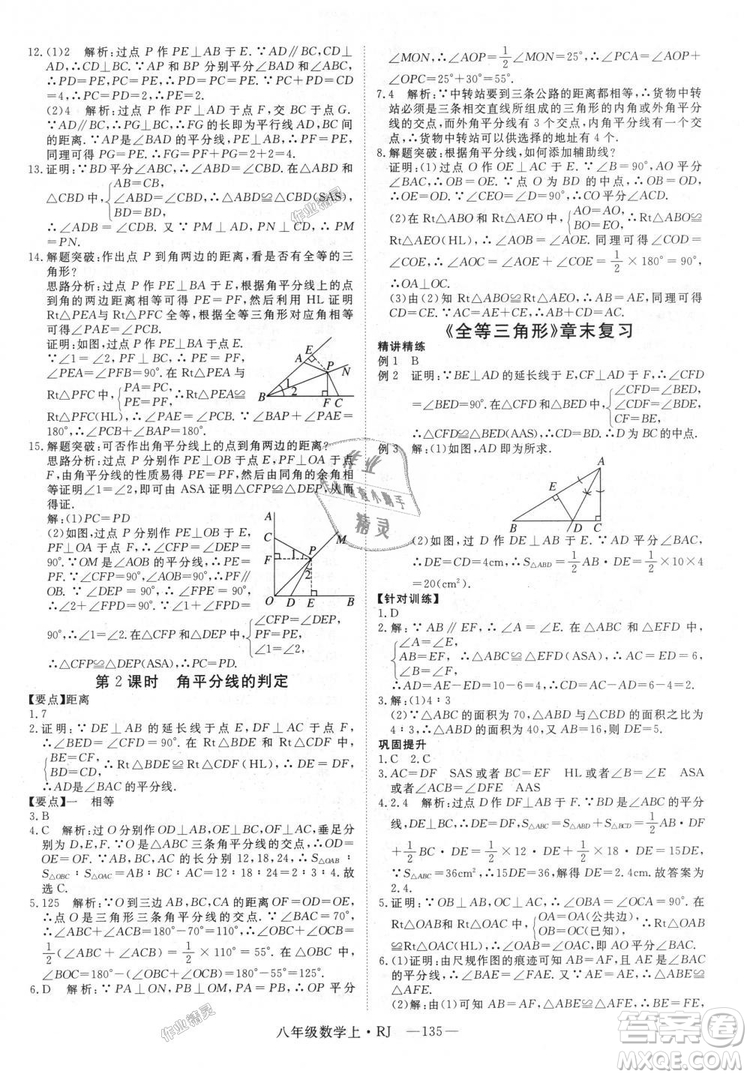 12. (1)2 解析:过点 P 作 PE⊥AB 于 E.∵AD∥BC,PD⊥CD
于 D,∴PC⊥BC.∵AP 和 BP 分别平分∠BAD 和∠ABC,
∴PD=PE,PC=PE.∴PC=PD.∵CD=4,∴PC=PD=2.
∴PE=2.
(2)4 解析:过点 P 作 PE⊥AD 于 F,交 BC 于点 G.
∵AD∥BC,∴PG⊥BC.∴FG 的长即为 AD、BC 之间的
距离.同理可得,PG=PF=2,∴FG=PG+PF=4.
13. 证明:∵BD 平分∠ABC,∴∠ABD=∠CBD.在△ABD 和
AB=CB,
△CBD 中,∠ABD=∠CBD,∴△ABD≌△CBD(SAS),
BD=BD,
∴∠ADB=∠CDB.又∵PM⊥AD,PN⊥CD,∴PM=
PN.
14. 解题突破:作出点 P 到角两边的距离,看是否有全等的三
角形?
思路分析:过点 P 作 PE⊥BA 于 E,根据角平分线上的
点到角的两边距离相等可得 PE=PF,然后利用 HL 证明
Rt△PEA 与 Rt△PFC 全等,根据全等三角形对应角相等
可得∠PAE=∠PCB.
证明:如图,过点 P 作 PE⊥BA 于 E.
∵∠1=∠2,PF⊥BC 于 F,∴PE=PF,
∠PEA=∠PFB=90°.在 Rt△PEA 与
Rt△PFC 中,PA=PC,PE=PF,∴Rt△PEA≌
Rt△PFC(HL),∴∠PAE=∠PCB.∵∠BAP+∠PAE=
180°,∴∠PCB+∠BAP=180°.
15. 解题突破:可否作出角平分线上的点到角两边的距离?
思路分析:过点 P 分别作 PE⊥OB 于 E,PF⊥OA 于 F,
由角平分线的性质易得 PE=PF,然后由同角的余角相
等证明∠1=∠2,即可由 ASA 证明△CFP≌△DEP,从而
得证.
解:(1)PC=PD
(2)如图,过点 P 分别作 PE⊥OB 于 E,
PF⊥OA 于点 F,∴∠CFP=∠DEP=
90°.∵OM 是∠AOB 的平分线,∴PE=
PF.∵∠1+∠FPD=90°,∠AOB=90°,
∴∠FPE=90°.∴∠2+∠FPD=90°.
∴∠1=∠2.在△CFP 和△DEP 中,
∠CFP=∠DEP,
PF=PE,
∠1=∠2,
∴△CFP≌△DEP(ASA),∴PC=PD.
第 2 课时 角平分线的判定
【要点】距离
1. 7
2. 证明:∵DE⊥AB 的延长线于点 E,DF⊥AC 于点 F,
∴∠BED=∠CFD=90°.在 Rt△BDE 和 Rt△CDF 中,
BE=CF,
BD=CD,
∴Rt△BDE≌Rt△CDF(HL),∴DE=DF.
∴AD 是∠BAC 的平分线.
【要点】一 相等
3. B
4. C 解析:过点 O 分别作 OD⊥AB,OE⊥BC,OF⊥AC,垂足分别为
D,E,F.∵O 是△ABC 三条角平分线的交点,∴OD=
OE=OF.∵AB,BC,AC 的长分别 12,18,24,∴S△OAB:
S△OBC:S△OAC=12:18:24=2:3:4.
故选 C.
5. 125 解析:∵O 到三边 AB、BC、CA 的距离 OF=OD=OE,
∴点 O 是三角形三条角平分线的交点.∵∠BAC=70°,
∴∠ABC+∠ACB=180°-70°=110°.∴∠OBC+∠OCB=
1/2(∠ABC+∠ACB)=1/2×110°=55°.在△OBC 中,
∠BOC=180°-(∠OBC+∠OCB)=180°-55°=125°.
6. D 解析:∵PA⊥OM,PB⊥ON,PA=PB,∴OP 平分
∠MON,∴∠AOP=1/2∠MON=25°.∴∠PCA=∠AOP+
∠OPC=25°+30°=55°.
7. 4 解析:∵中转站要到三条公路的距离都相等,∴货物中转
站必须是三条相交直线所组成的三角形的内角或外角平分
线的交点,而外角平分线有 3 个交点,内角平分线有一个交
点,∴货物中转站可以供选择的地址有 4 个.
8. 解题突破:根据角平分线,如何添加辅助线?
(1)证明:过点 O 作 OE⊥AC 于 E.∵∠ABD=90°,OA 平
分∠BAC,∴OB=OE.∵点 O 为 BD 的中点,∴OB=OD,
∴OE=OD,∴OC 平分∠ACD.
(2)在 Rt△ABO 和 Rt△AEO 中,AO=AO,BO=EO,∴Rt△ABO≌
Rt△AEO(HL),∴∠AOB=∠AOE.同理可得∠COD=
∠COE.∴∠AOC=∠AOE+∠COE=1/2×180°=90°,
∴OA⊥OC.
(3)由(2)知 Rt△ABO≌Rt△AEO,∴AB=AE.同理可得
CD=CE.∵AC=AE+CE,∴AB+CD=AC.
《全等三角形》章末复习
精讲精练
例 1 B
例 2 证明:∵BE⊥AD 的延长线于 E,CF⊥AD 于 F,
∴∠BED=∠CFD=90°.在△BED 和△CFD 中,
∠BED=∠CFD,
∠BDE=∠CDF,
BE=CF,
∴△BED≌△CFD(AAS),∴BD=CD.
例 3 解:(1)如图,AD 即为所求.
(2)如图,过 D 作 DE⊥AB 于 E,∵AD 平分∠BAC,
∴DE=CD=4cm,∴S△ABD=1/2AB·DE=1/2×10×4
=20(cm²).
【针对训练】
1. D
2. 解:∵AB∥EF,∴∠A=∠E.在△ABC 和△EFD 中,
∠A=∠E,
∠C=∠EDF,
AB=EF,
∴△ABC≌△EFD(AAS),∴AC=ED,
∴AD=AE-ED=AE-AC=10-6=4.
3. 解:(1)4:3
(2)∵△ABC 的面积为 70,△ABD 与△ADC 的面积比为
4:3,∴△ABD 的面积为 40.∵AB=16,∴DE=5.
巩固提升
1. C 2. C
3. AC=DF SAS 或者 BC=EF HL 或者∠A=∠D ASA
或者∠ACB=∠DFE AAS
4. 2.4 解析:过点 D 作 DF⊥BC 于 F.∵BD 是∠ABC 的平分
线,DE⊥AB,∴DE=DF,∵S△ABC=S△ABD+S△BCD=1/2AB·
DE+1/2BC·DF=1/2×12·DE+1/2×18·DE=15DE,
∴15DE=36,解得 DE=2.4.故答案为
2.4.
5. 证明:∵OB⊥AB,OC⊥AC,∴∠B=∠C=90°.在
Rt△ABO 和 Rt△ACO 中,OA=OA(公共边),OB=OC(已知),∴Rt△ABO≌
Rt△ACO(HL),∴∠BAO=∠CAO,∴AO 平分∠BAC.
6. (1)证明:由尺规作图的痕迹可得,AF 平分∠BAC,
∴∠BAE=∠EAF.∵AD∥BC,∴∠EAF=∠AEB,∴∠BAE=
∠AFE.
(2)解:由(1)可知∠BAE=∠EAF,∠BAE=∠AFE,∴
八年级数学上·RJ —135—